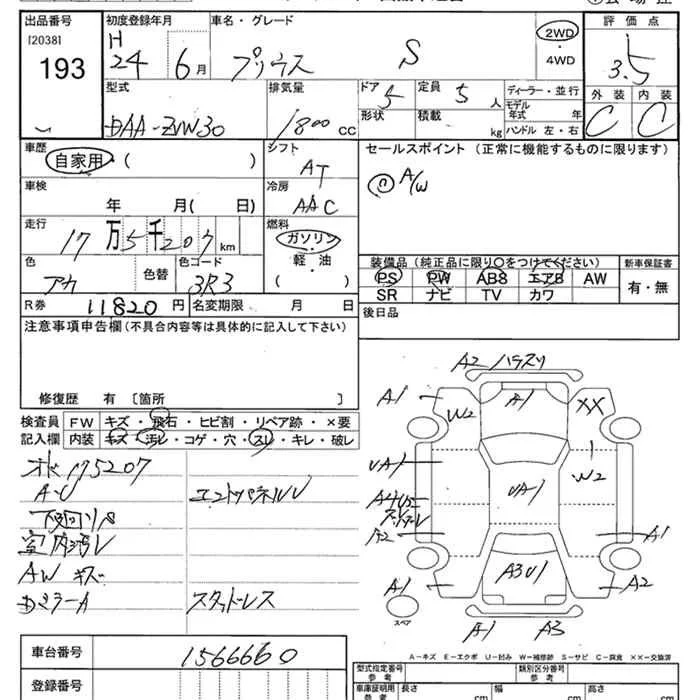 出品番号
[2038]
193
初度登録年月
H
24 6月
車名・グレード
プリウス S
2WD
・
4WD
評価点
3.5
外装 内装
C C
型式
DAA-ZVW30
排気量
1800 CC
ドア 5
形状
定員 5 人
積載 kg
ディーラー・並行
モデル年式 年
ハンドル 左・右
車歴
自家用・( )
シフト
AT
セールスポイント (正常に機能するものに限ります)
A/W
車検
年 月( 日)
冷房
AAC
走行
17万5千207 km
燃料
ガソリン
軽・油
( )
色
アカ
色替
色コード
3R3
装備品(純正品に限り〇をつけてください)
PS PW ABS エアB AW
SR ナビ TV カワ
新車保証書
有・無
R券 11820 円
名変期限 月 日
後日品
注意事項申告欄(不具合内容等は具体的に記入して下さい)
修復歴 有 〔箇所 〕
検査員
記入欄
FW キズ・飛石・ヒビ割・リペア跡・×要
内装 キズ・汚レ・コゲ・穴・スレ・キレ・破レ
175207
A・U
室内汚レ
AW キズ
ミラーA
スタッドレス
A2
A1
A1
W2
XX
UA1
W2
UA1
A2
A1
A3U1
A1
A2
スペア
A1
A3
A-キズ E-エクボ U-凹み W-補修跡 S-サビ C-腐食 ××-交換済
車台番号
1566660
登録番号
型式指定番号
参考
類別区分番号
参考
車庫証明用
参考
長さ cm
幅 cm
高さ cm